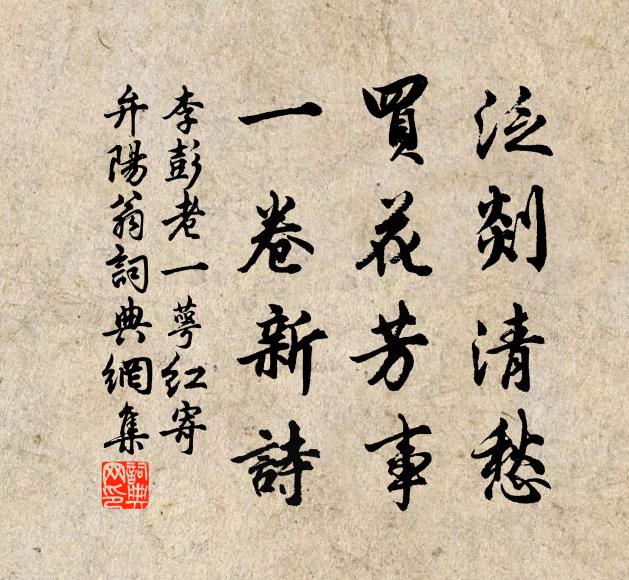 泛剡清愁
買花芳事
一卷新詩
李彭老一萼紅寄
弁陽翁詞典網集
詞典網印